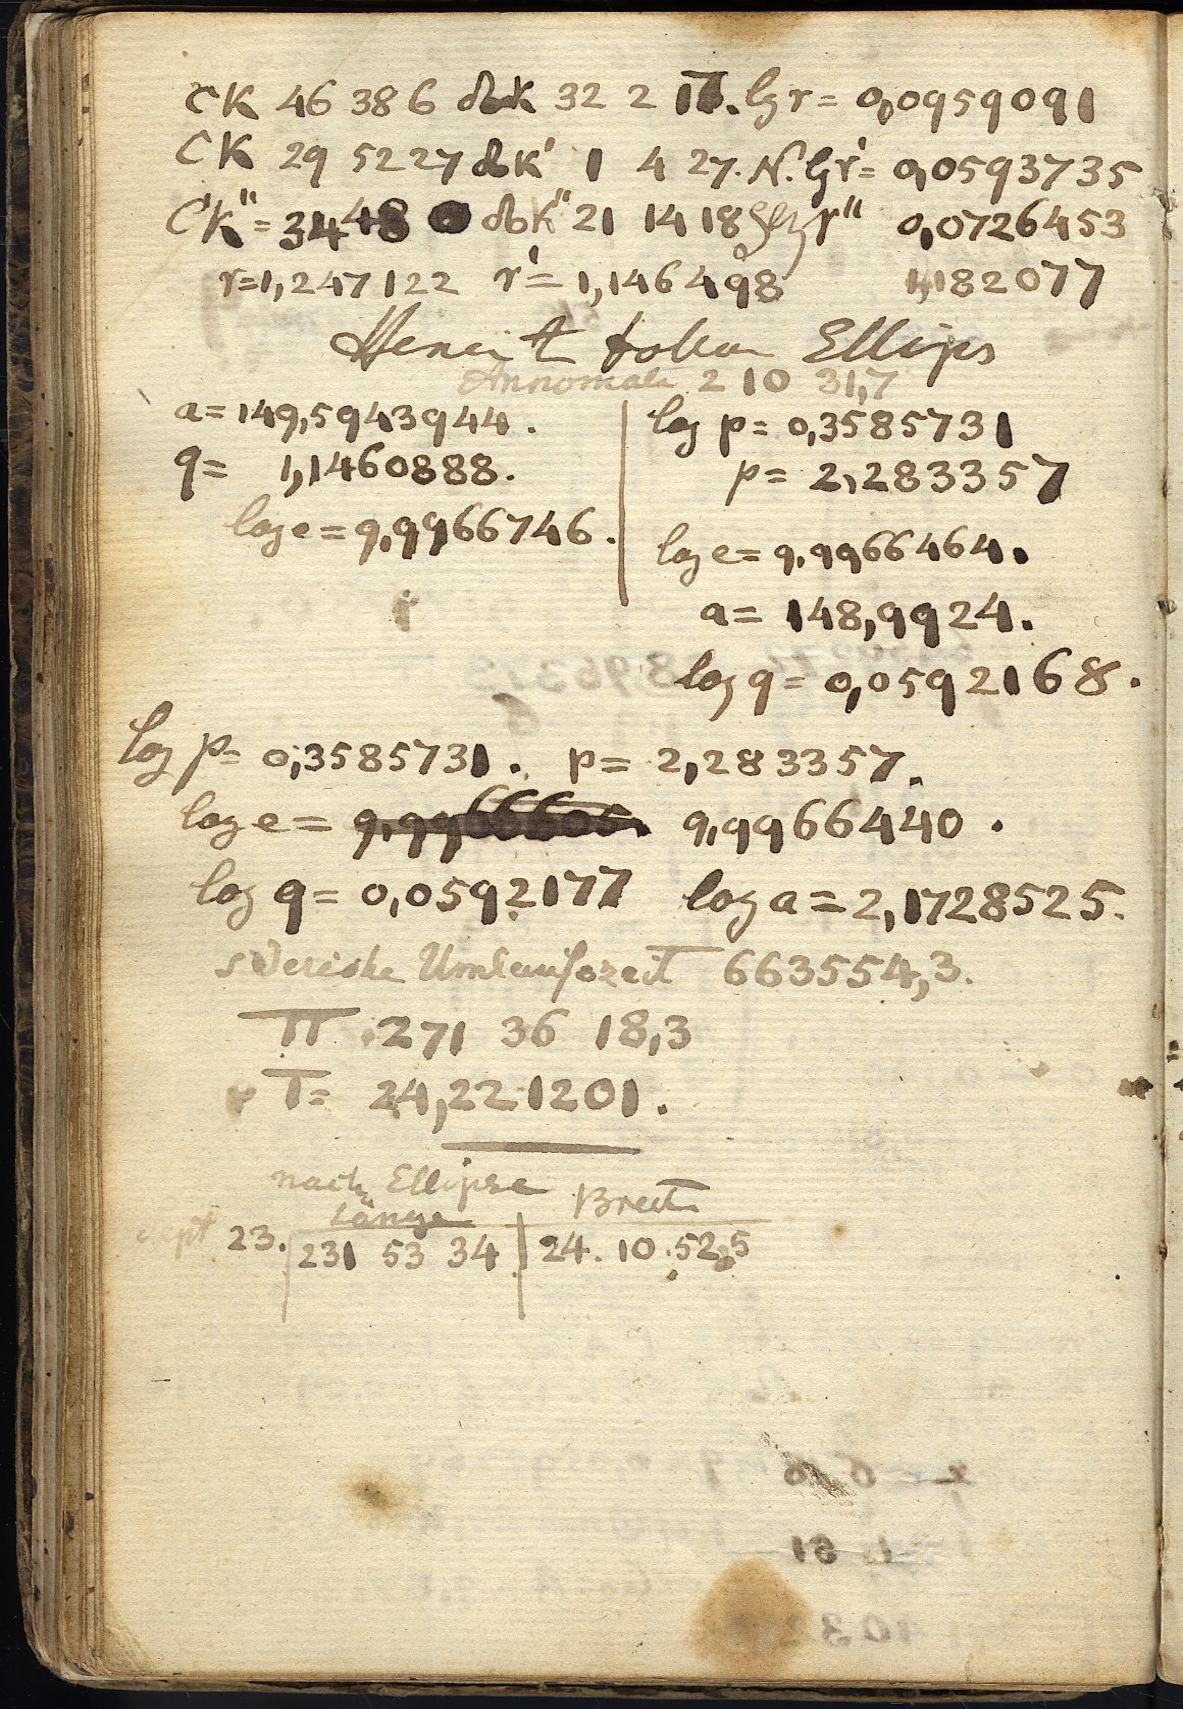 CK 46 38 6 dbk 32 2 17. lg r = 0,0959091
CK 29 52 27 dbk' 1 4 27. N. lg r' = 0,0593735
C'k" = 34 48 dbk" 21 14 18 r" 0,0726453
r=1,247122 r' = 1,146498 1,182077
Ellips
Annomali 2 10 31,7
a = 149,5943944.
q = 1,1460888.
log e = 9,9966746.
log p = 0,3585731
p = 2,283357
log e = 9,9966464.
a = 148,9924.
log q = 0,0592168.
log p = 0,3585731. p = 2,283357.
log e = 9,9966605. 9,9966440.
log q = 0,0592177 log a = 2,1728525.
siderishe Umlaufszeit 663554,3.
π 271 36 18,3
T = 24,221201.
nach Ellipse
Länge Breit
Sept 23. 231 53 34 24. 10. 52,5